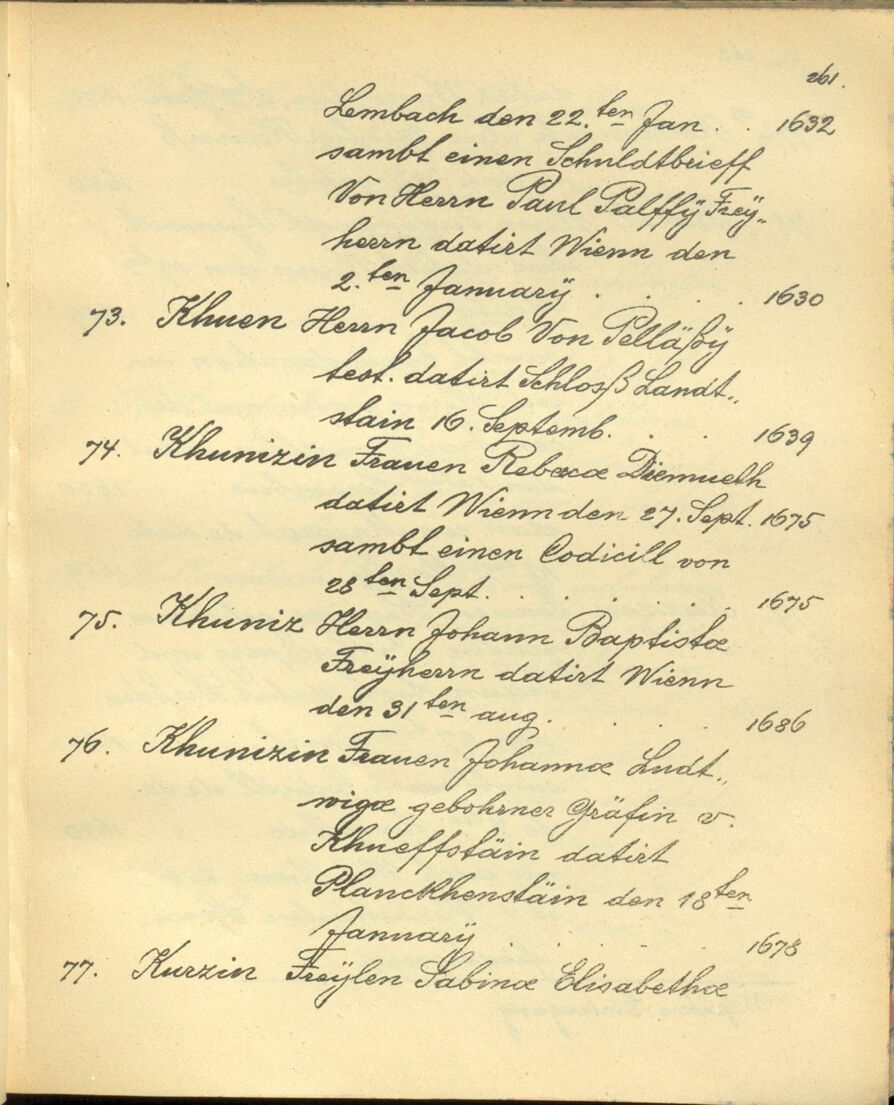 261.
Lembach den 22.ten Jan. . . 1632
sambt einen Schuldtbrieff
Von Herrn Paul Palffÿ Freÿ„
herrn datirt Wienn den
2.ten Januarÿ . . . . 1630
73. Khuen Herrn Jacob Von Pelläßÿ
test. datirt Schloß Landt„
stain 16. Septemb. . . . 1639
74. Khunizin Frauen Rebecæ Diemueth
datirt Wienn den 27. Sept. 1675
sambt einen Codicill von
28ten Sept. . . . . . 1675
75. Khuniz Herrn Johann Baptistæ
Freÿherrn datirt Wienn
den 31ten aug. . . . . 1686
76. Khunizin Frauen Johannæ Ludt„
wigæ gebohrner Gräfin v.
Khueffstäin datirt
Planckhenstäin den 18ten
Januarÿ . . . . . 1678
77. Kurzin Freÿlen Sabinæ Elisabethæ